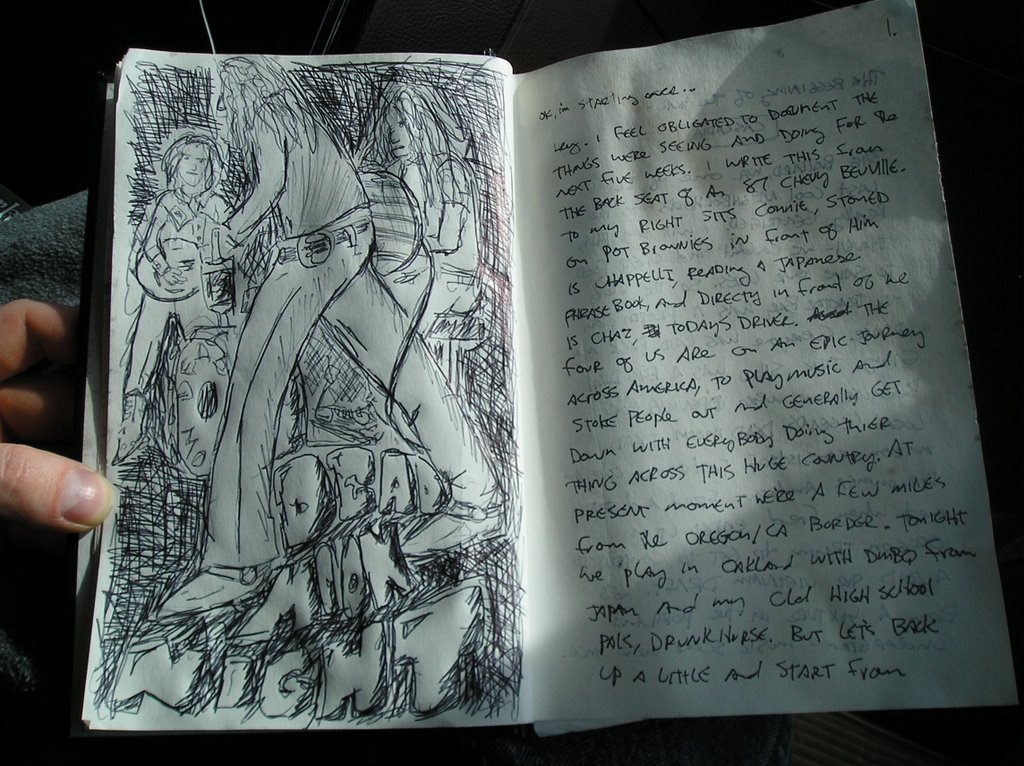 DEAD
MOON
NIGHT
1.
OK, im starting over...
I FEEL OBLIGATED TO DOCUMENT THE
THINGS WERE SEEING AND DOING FOR THE
NEXT FIVE WEEKS. I WRITE THIS from
THE BACK SEAT OF AN '87 CHEVY BEUVILLE.
TO my RIGHT SITS CONNIE, STONED
ON POT BROWNIES in front of Him
IS CHAPPELLI, READING A JAPANESE
PHRASE BOOK, AND DIRECTLY in front of me
IS CHAZ, TODAYS DRIVER. THE
FOUR OF US ARE ON AN EPIC JOURNEY
ACROSS AMERICA, TO PLAY MUSIC AND
STOKE PEOPLE OUT AND GENERALLY GET
DOWN WITH EVERYBODY DOING THIER
THING ACROSS THIS HUGE COUNTRY. AT
PRESENT MOMENT WERE A FEW MILES
from the OREGON/CA BORDER. TONIGHT
WE PLAY IN OAKLAND WITH DMBQ from
JAPAN AND my OLD HIGH SCHOOL
PALS, DRUNK HORSE. BUT LET'S BACK
UP A LITTLE AND START from